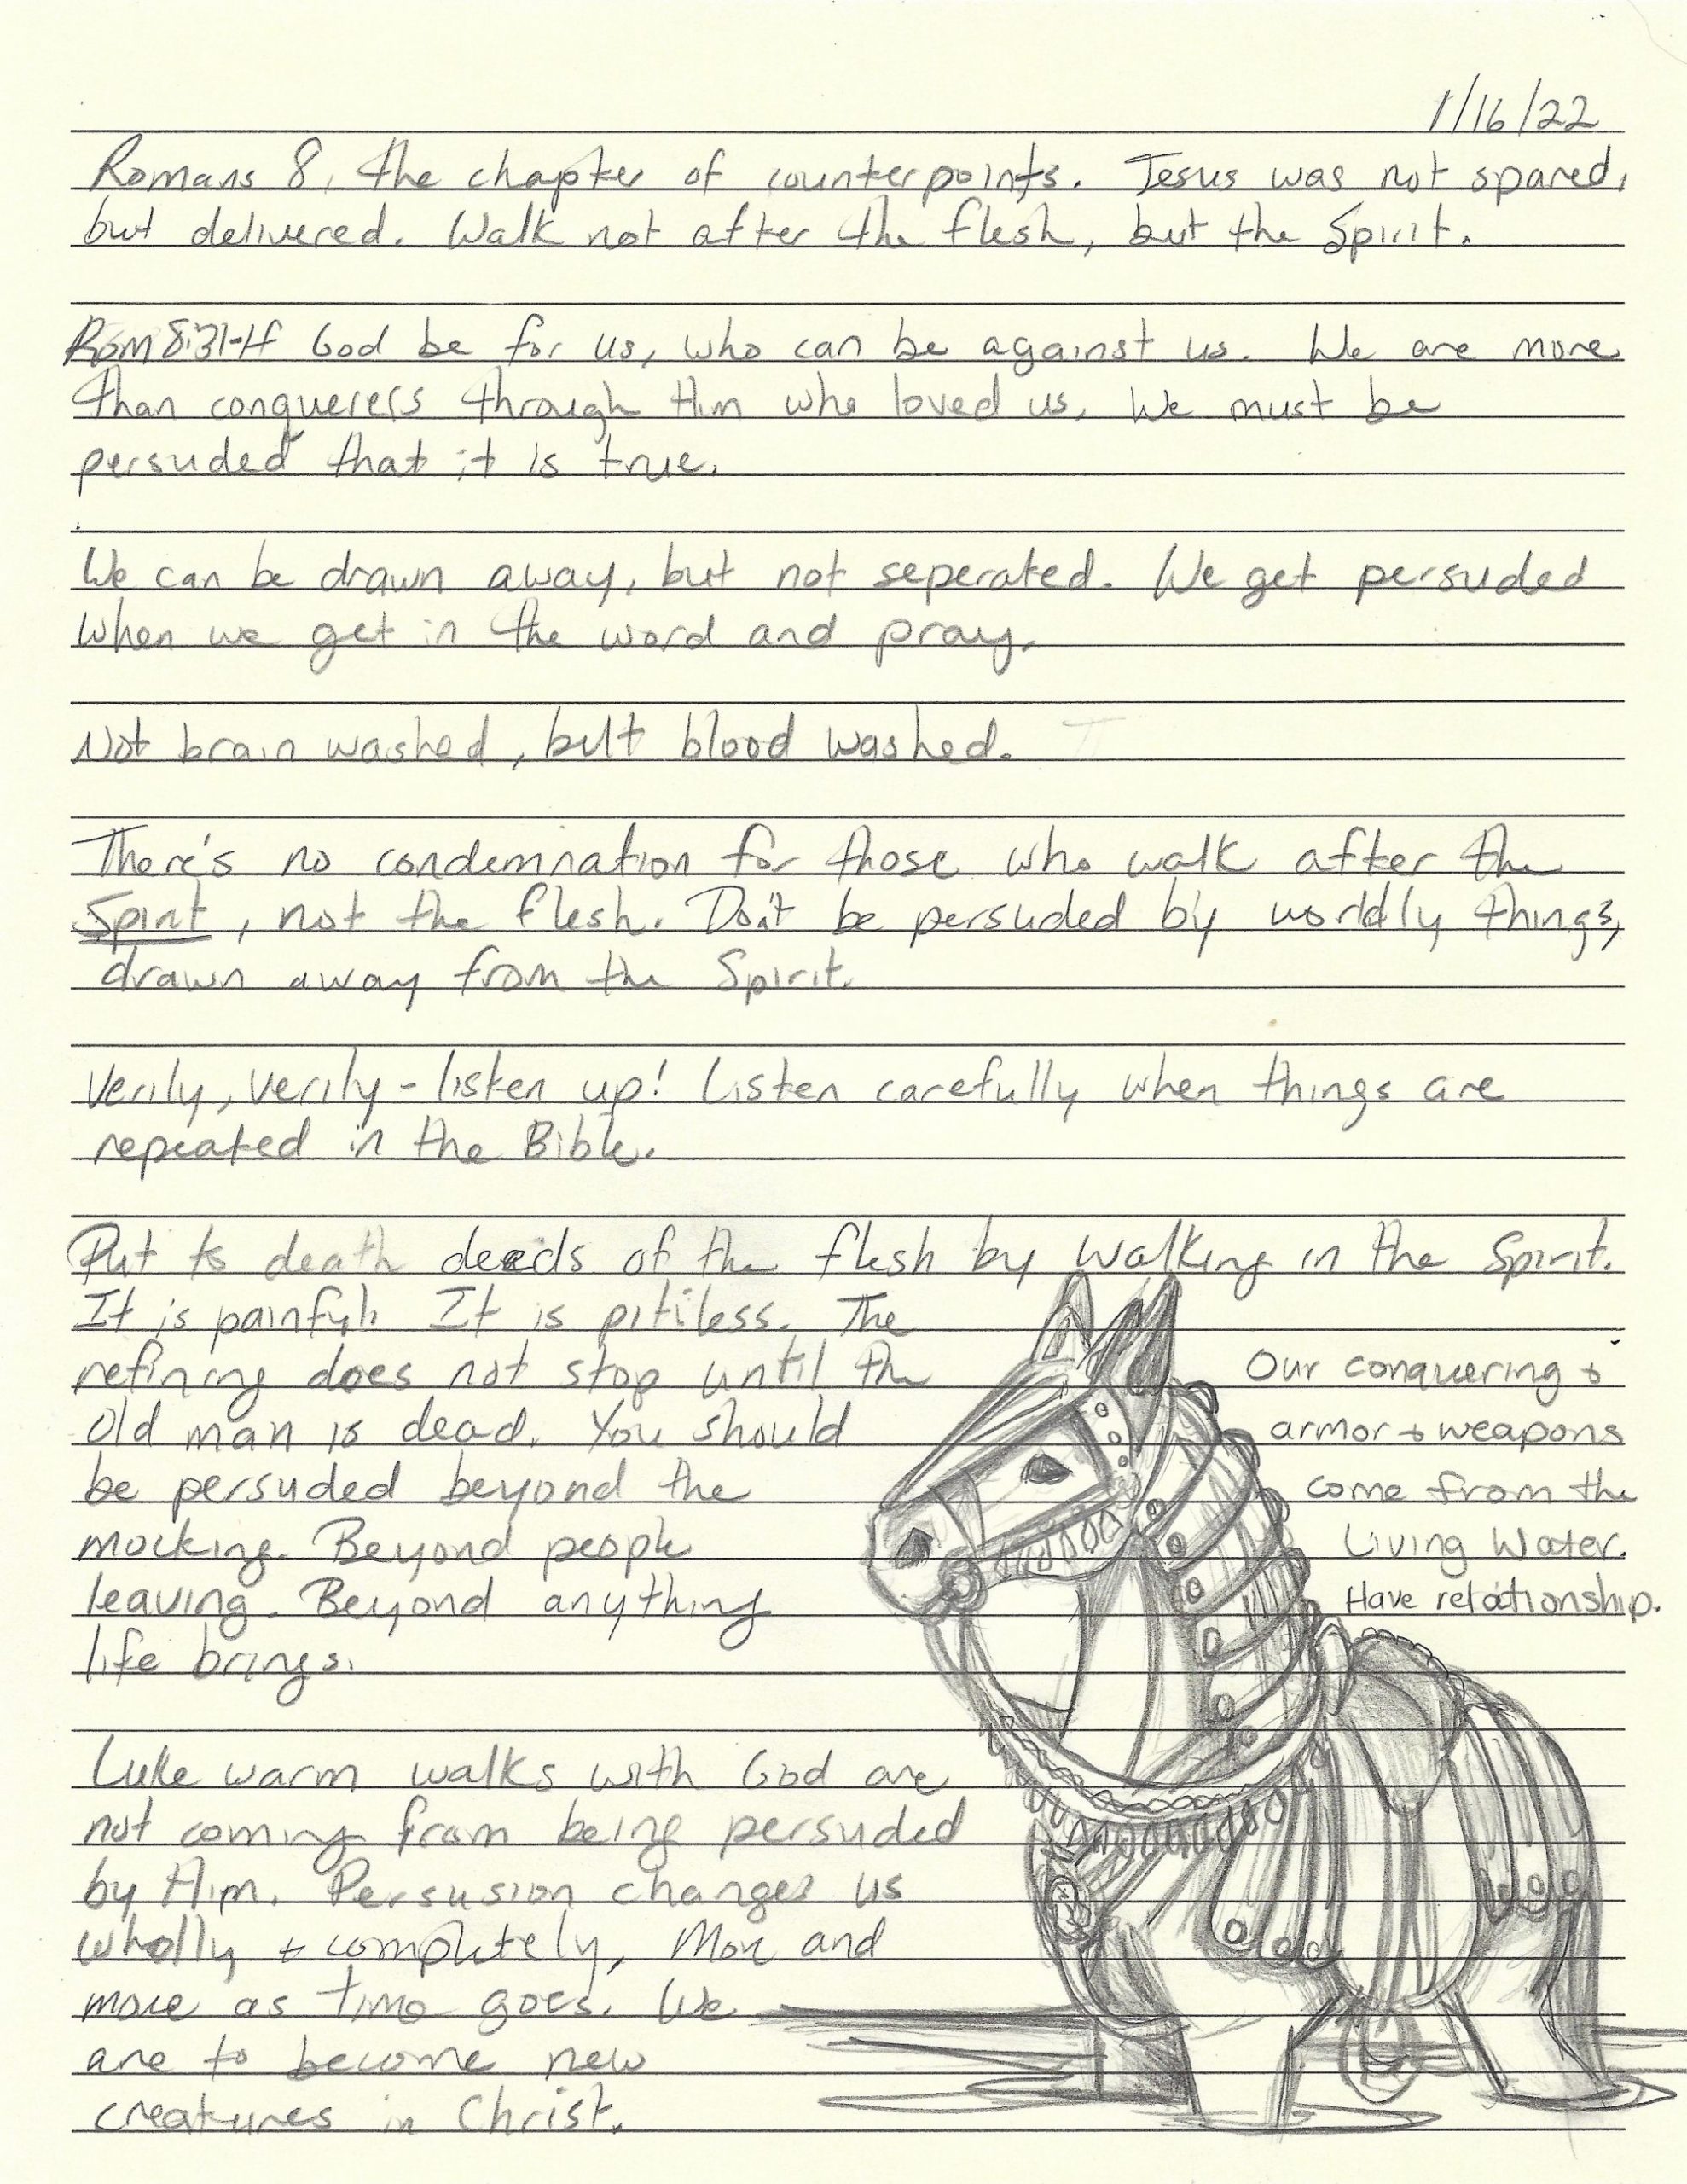 1/16/22
Romans 8, the chapter of counterpoints. Jesus was not spared,
but delivered. Walk not after the flesh, but the Spirit.
Rom 8:31-If God be for us, who can be against us. We are more
than conquerers through Him who loved us. We must be
persuded that it is true.
We can be drawn away, but not seperated. We get persuded
when we get in the word and pray.
Not brain washed, but blood washed.
There's no condemnation for those who walk after the
Spirit, not the flesh. Don't be persuded by worldly things,
drawn away from the Spirit.
Verily, verily - listen up! Listen carefully when things are
repeated in the Bible.
Put to death deeds of the flesh by walking in the Spirit.
It is painful. It is pitiless. The
refining does not stop until the
old man is dead. You should
be persuded beyond the
mocking. Beyond people
leaving. Beyond anything
life brings.
Our conquering +
armor + weapons
come from the
Living Water.
Have relationship.
Luke warm walks with God are
not coming from being persuded
by Him. Persusion changes us
wholly + completely, More and
more as time goes. We
are to become new
creatures in Christ.